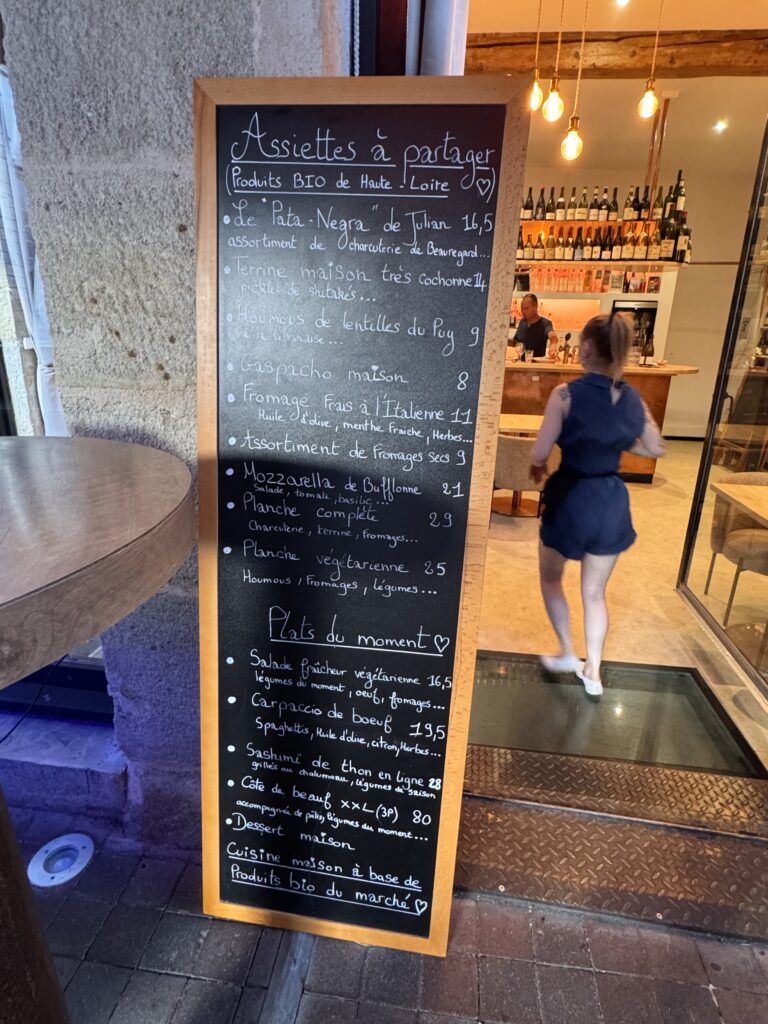 Assiettes à partager
(Produits BIO de Haute-Loire ♡)
• Le "Pata-Negra" de Julian 16,5
assortiment de charcuterie de Beauregard...
• Terrine maison très cochonne 14
pickles de shitakés...
de lentilles du Puy 9
• Gaspacho maison 8
• Fromage Frais à l'Italienne 11
Huile d'olive, menthe Fraiche, Herbes...
• Assortiment de Fromages secs 9
• Mozzarella de Bufflonne 21
Salade, tomate, basilic...
• Planche complète 29
Charcuterie, terrine, Fromages...
• Planche végétarienne 25
Houmous, Fromages, légumes...
Plats du moment ♡
• Salade fraîcheur végétarienne 16,5
légumes du moment, oeuf, fromages...
• Carpaccio de boeuf 19,5
Spaghettis, Huile d'olive, citron, Herbes...
• Sashimi de thon en ligne 28
grillés au chalumeau, légumes de saison
• Côte de bœuf XXL (3P) 80
accompagnée de pâtes, légumes du moment...
• Dessert maison
Cuisine maison à base de
Produits bio du marché ♡